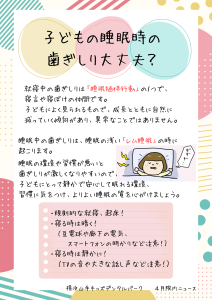 子どもの睡眠時の
歯ぎしり大丈夫?
就寝中の歯ぎしりは「睡眠随伴行動」の1つで、
寝言や寝ぼけの仲間です。
子どもによく見られるもので、成長とともに自然に
減っていく傾向があり、異常なことではありません。
睡眠中の歯ぎしりは、睡眠の浅い「レム睡眠」の時に
起こります。
睡眠の環境や習慣が悪いと
歯ぎしりが激しくなりやすいので、
子どもにとって静かで安心して眠れる環境、
習慣に気をつけ、よりよい睡眠の質を心がけましょう。
・規則的な就寝、起床!
・寝る時は暗く!
(豆電球や廊下の電気、
スマートフォンの明かりなど注意!)
・寝る時は静かに!
(TVの音や大きな話し声など注意!)
横浜山手キッズデンタルパーク
4月院内ニュース